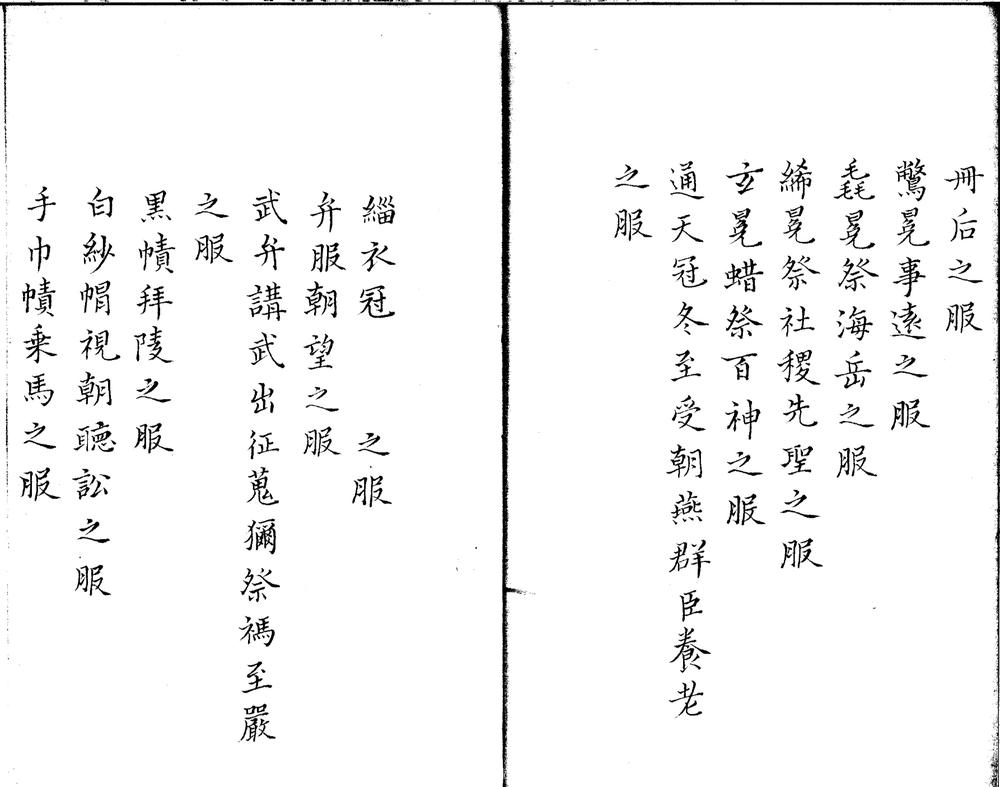 冊后之服
鷩冕事遠之服
毳冕祭海岳之服
絺冕祭社稷先聖之服
玄冕蜡祭百神之服
通天冠冬至受朝燕群臣養老
之服
緇衣冠　　之服
弁服朝望之服
武弁講武出征蒐獮祭禡至嚴
之服
黑幘拜陵之服
白紗帽視朝聽訟之服
手巾幘乗馬之服